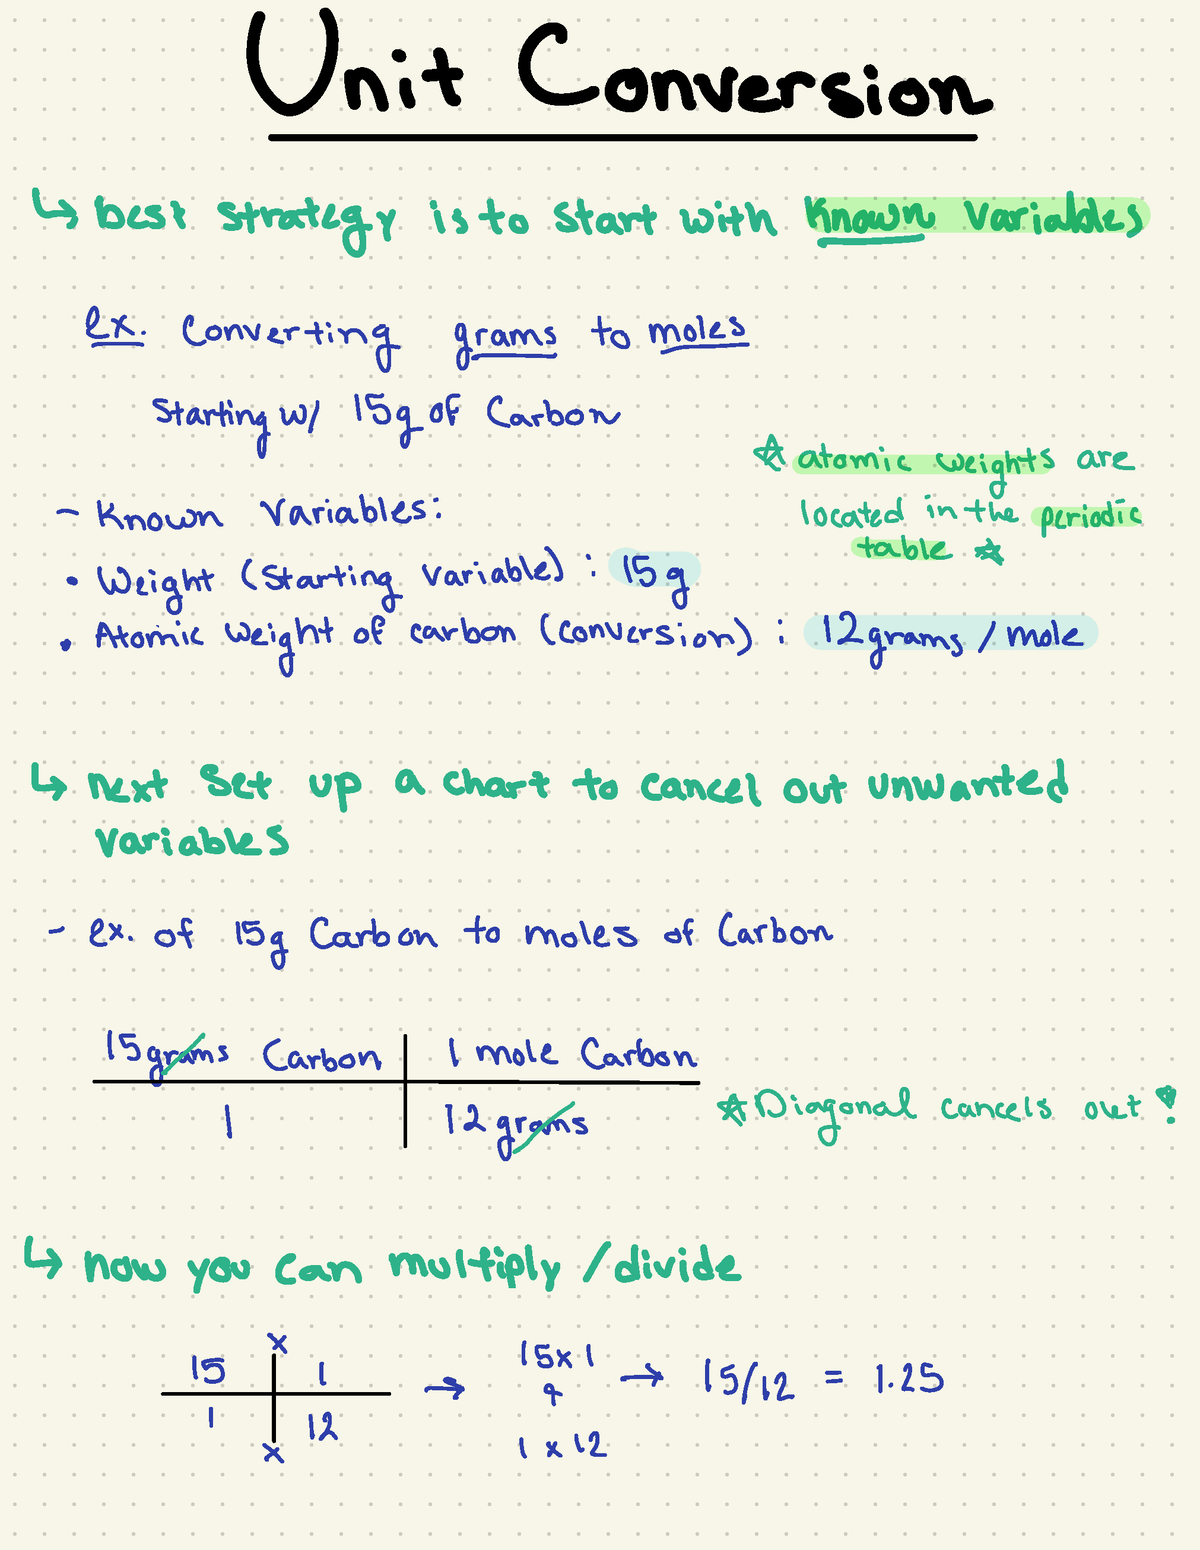 Unit Conversion
↳ best strategy is to start with known variables
ex. Converting grams to moles
Starting w/ 15g of Carbon
☆ atomic weights are
located in the periodic
table ☆
- Known Variables:
• Weight (starting variable) : 15g
• Atomic weight of carbon (conversion) : 12grams / mole
↳ next set up a chart to cancel out unwanted
variables
- ex. of 15g Carbon to moles of Carbon
15grams Carbon | 1 mole Carbon
1 | 12 grams
☆ Diagonal cancels out !
↳ now you can multiply / divide
x
15 | 1
1 | 12
x
→ 15x1
&
1 x 12
→ 15/12 = 1.25